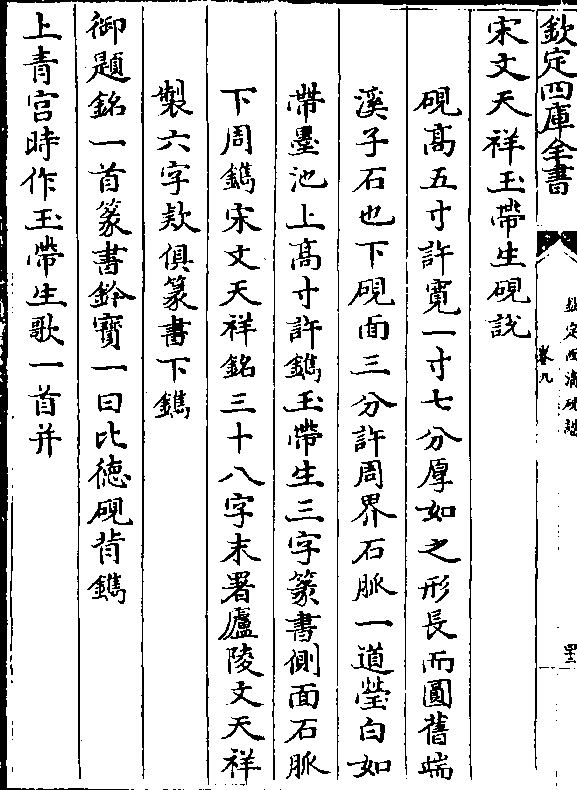 欽定四庫全書
欽定西清硯譜
卷九
宋文天祥玉帶生硯說
硯髙五寸許寛一寸七分厚如之形長而圓舊端
溪子石也下硯面三分許周界石脈一道瑩白如
帶墨池上髙寸許鐫玉帶生三字篆書側面石脈
下周鐫宋文天祥銘三十八字末署廬陵文天祥
製六字欵俱篆書下鐫
御題銘一首篆書鈐寶一曰比徳硯背鐫
上青宫時作玉帶生歌一首并